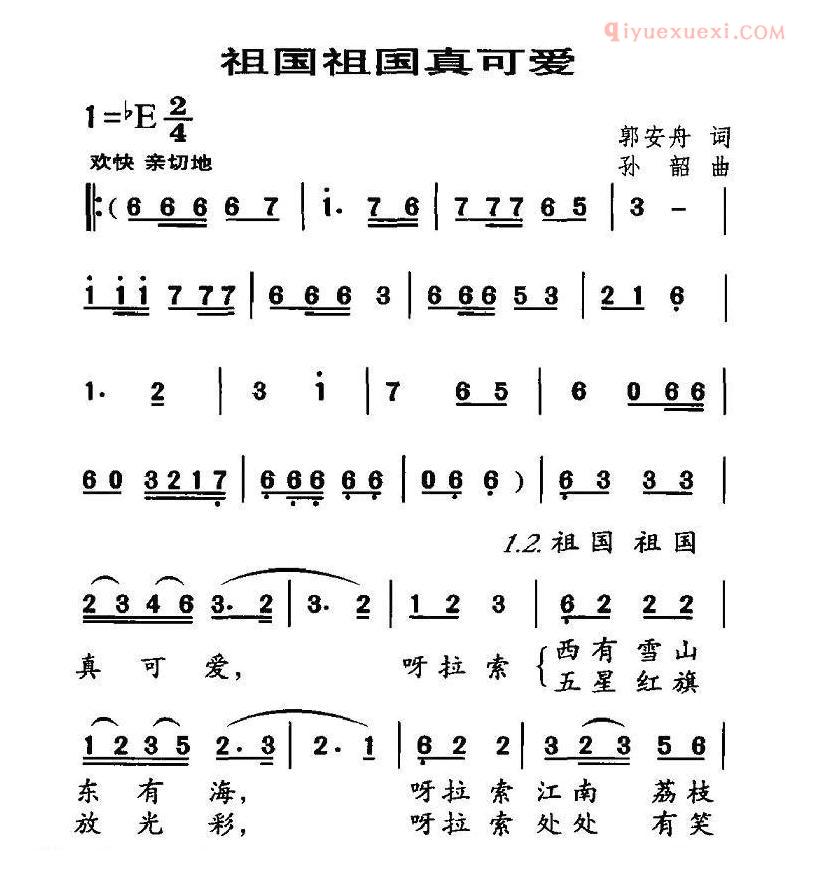 qiyuexuexi.COM
祖国祖国真可爱
1=♭E 2/4
郭安舟 词
欢快 亲切地
孙 韶 曲
‖:( 6 6 6 6 7 | i· 7 6 | 7 7 7 6 5 | 3 - |
i i i 7 7 7 | 6 6 6 3 | 6 6 6 5 3 | 2 1 6̣ |
1· 2 | 3 i | 7 6 5 | 6 0 6 6 |
6 0 3 2 1 7̣ | 6̣ 6̣ 6̣ 6̣ 6̣ | 0 6̣ 6̣ ) | 6̣ 3 3 3 |
1.2. 祖国 祖国
2 3 4 6 3· 2 | 3· 2 | 1 2 3 | 6̣ 2 2 2 |
真 可 爱, 呀拉索 { 西有 雪山
五星 红旗
1 2 3 5 2· 3 | 2· 1 | 6̣ 2 2 | 3 2 3 5 6 |
东 有 海, 呀拉索 江南 荔枝
放 光 彩, 呀拉索 处处 有笑